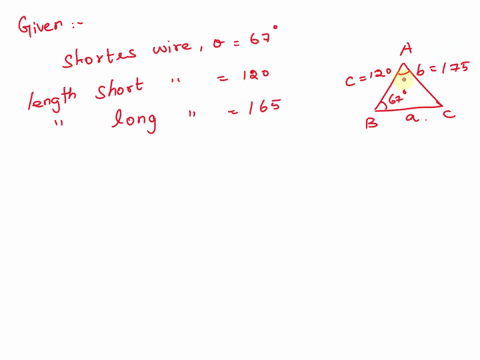 Given :-
shortes wire, θ = 67°
length short " = 120
" long " = 165
A
c = 120 b = 175
θ
67°
B a. C